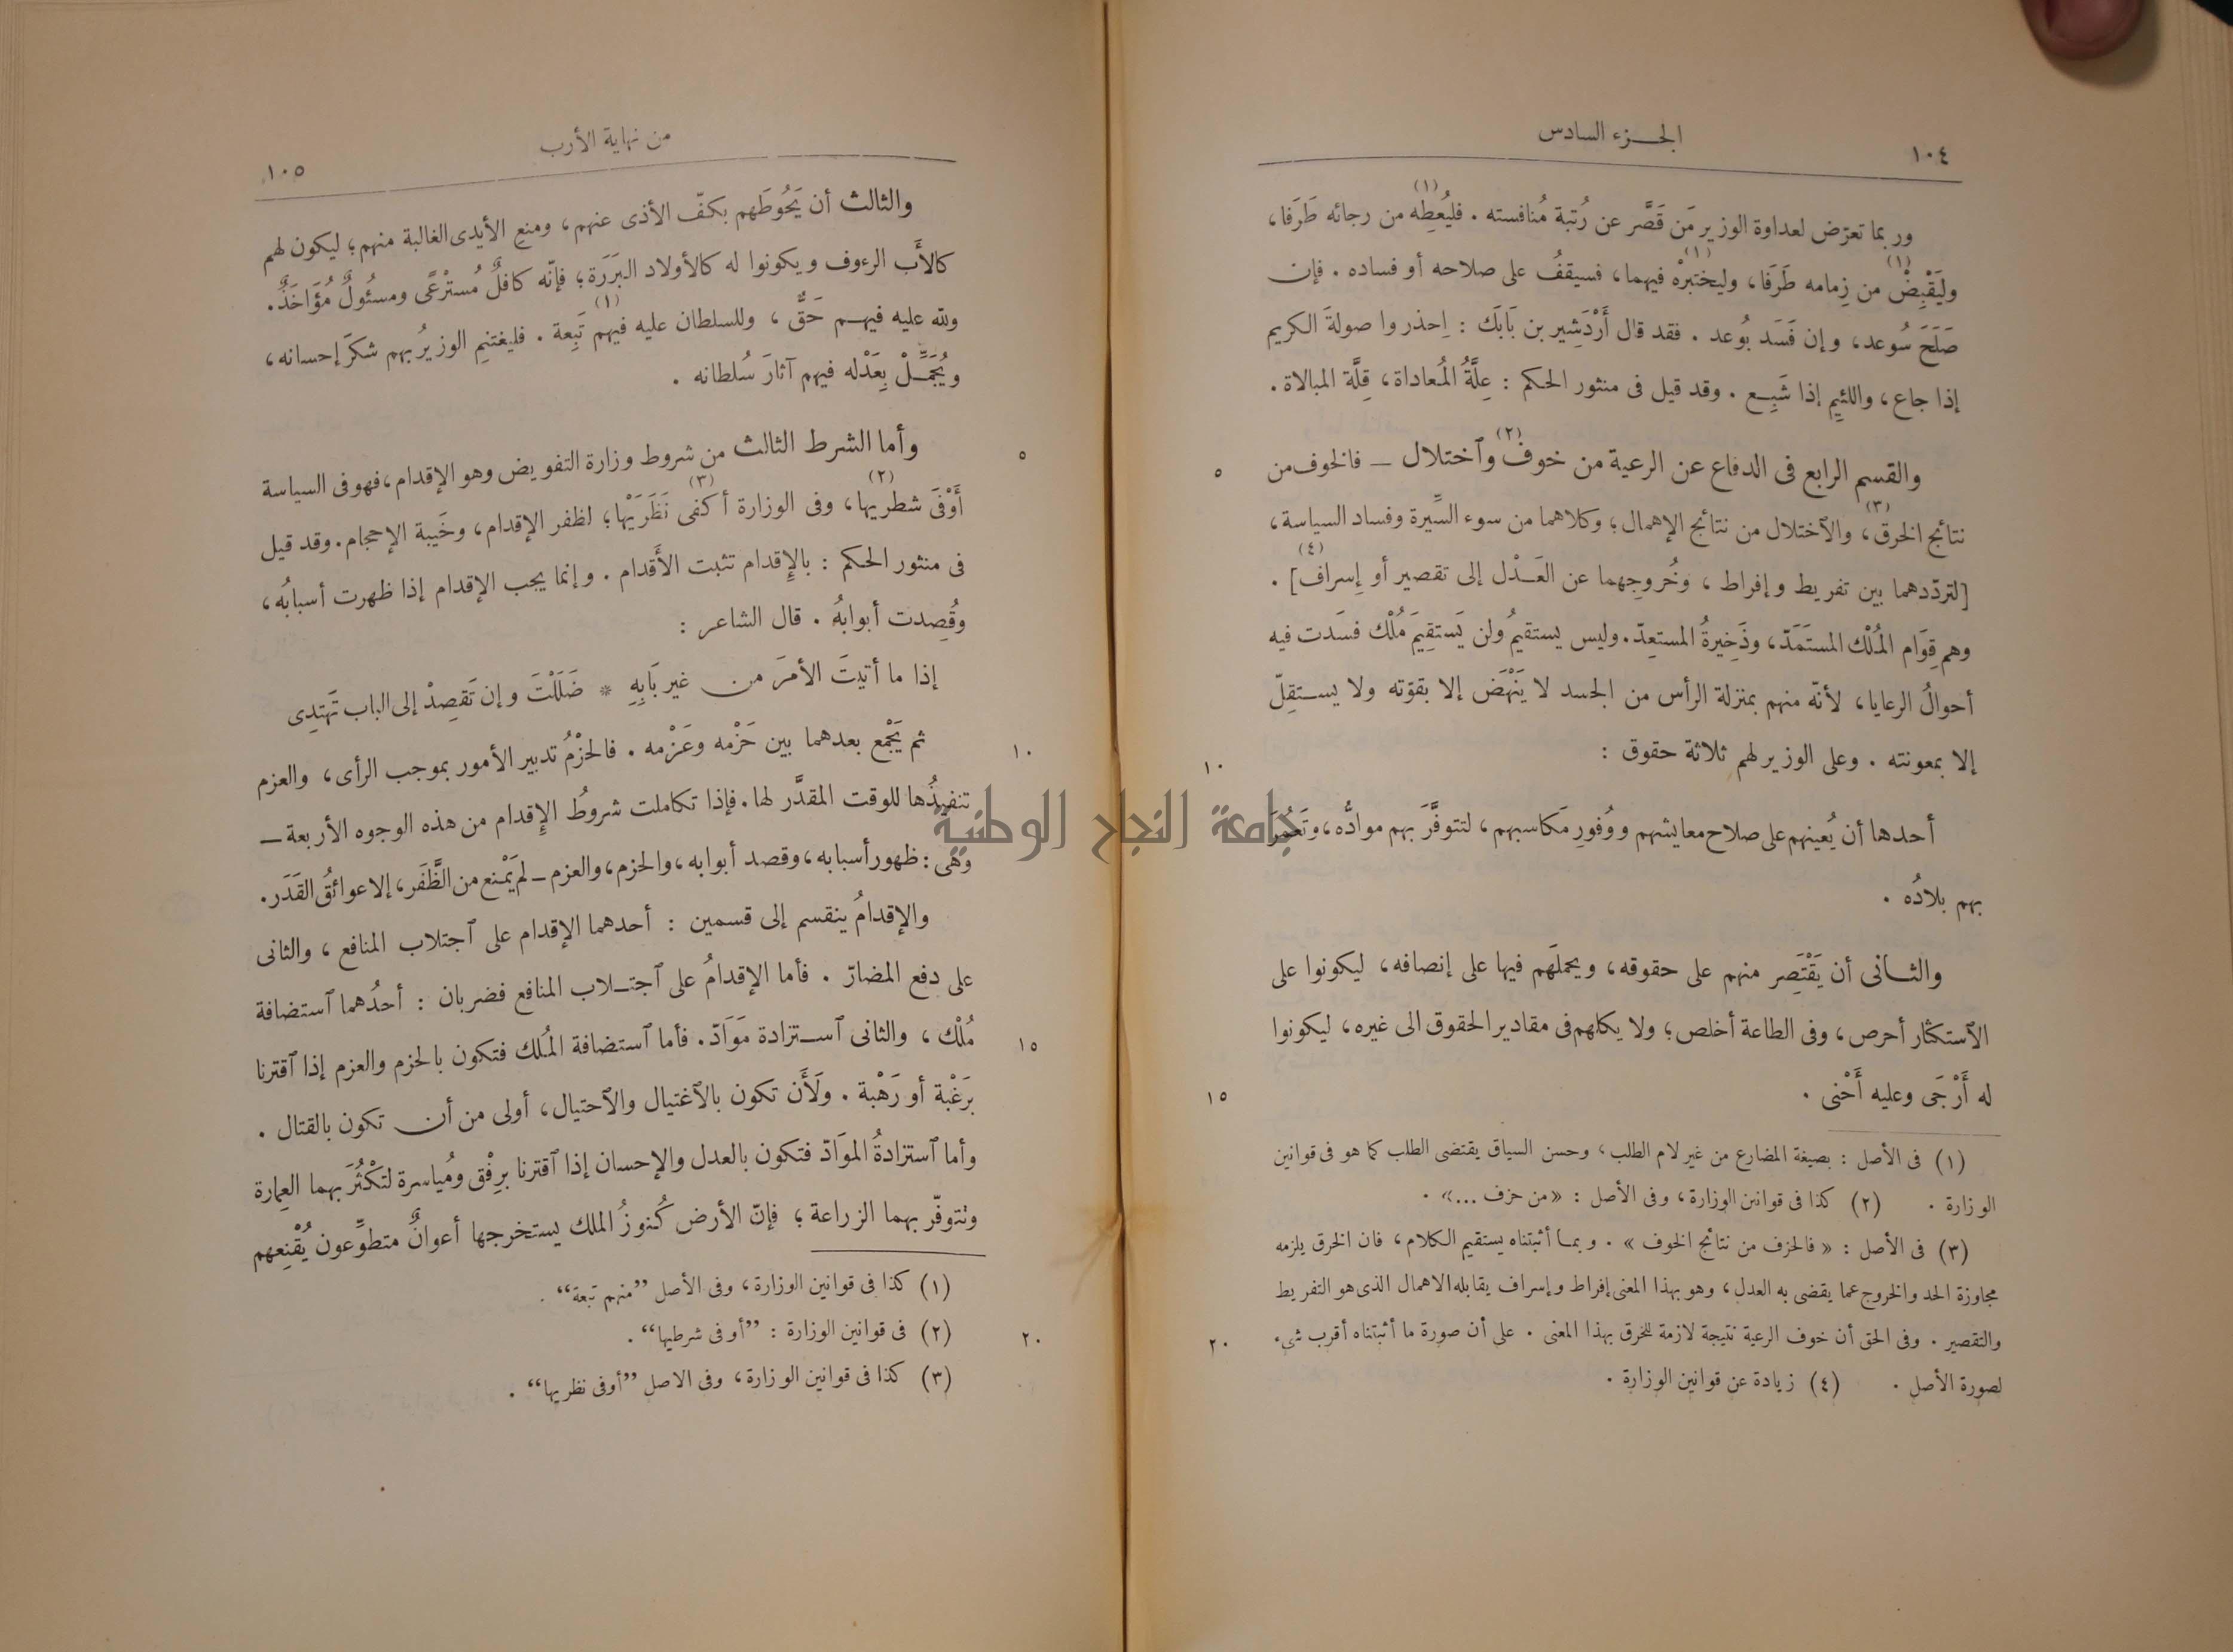 ١٠٤
الجـزء السادس
وربما تعرّض لعداوة الوزير مَن قَصَّر عن رُتبة مُنافسته . فليُعطِه (١) من رجائه طَرَفا،
وليَقْبِضْ (١) من زِمامه طَرَفا، وليختبرْه (١) فيهما، فسيقفُ على صلاحه أو فساده . فإن
صَلَحَ سُوعد، وإن فَسَد بُوعد . فقد قال أَرْدَشِير بن بَابَك : اِحذروا صولةَ الكريم
إذا جاع، واللئيمِ إذا شَبِـع . وقد قيل فى منثور الحكم : عِلَّةُ المُعاداة، قِلَّة المبالاة .
والقسم الرابع فى الدفاع عن الرعية من خوف (٢) وٱختلال — فالخوف من
٥
نتائج الخرق (٣)، والٱختلال من نتائج الإهمال؛ وكلاهما من سوء السِّيرة وفساد السياسة،
[لتردّدهما بين تفريط وإفراط ، وخُروجِهما عن العَـدْل إلى تقصير أو إسراف (٤)] .
وهم قِوَام المُلْك المستَمَدّ، وذَخِيرةُ المستعِدّ. وليس يستقيمُ ولن يَستَقِيمَ مُلْك فسَدت فيه
أحوالُ الرعايا، لأنّه منهم بمنزلة الرأس من الجسد لا يَنْهَض إلا بقوّته ولا يسـتقِلّ
إلا بمعونته . وعلى الوزير لهم ثلاثة حقوق :
١٠
أحدها أن يُعينهم على صلاح معايشهم ووُفورِ مَكاسبهم، لتتوفَّرَ بهم موادُّه، وتَعمُرَ
بهم بلادُه .
والثـانى أن يَقْتَصِر منهم على حقوقه، ويحملَهم فيها على إنصافه، ليكونوا على
الٱستكثار أحرص، وفى الطاعة أخلص؛ ولا يكلهم فى مقادير الحقوق الى غيره، ليكونوا
له أَرْجَى وعليه أَحْنى .
١٥
(١) فى الأصل : بصيغة المضارع من غير لام الطلب، وحسن السياق يقتضى الطلب كما هو فى قوانين
الوزارة . (٢) كذا فى قوانين الوزارة، وفى الأصل : «من حزف ...» .
(٣) فى الأصل : « فالحزف من نتائج الخوف » . وبمـا أثبتناه يستقيم الكلام، فان الخرق يلزمه
مجاوزة الحد والخروج عما يقضى به العدل، وهو بهذا المعنى إفراط وإسراف يقابله الاهمال الذى هو التفريط
والتقصير . وفى الحق أن خوف الرعية نتيجة لازمة للخرق بهذا المعنى . على أن صورة ما أثبتناه أقرب شىء
٢٠
لصورة الأصل . (٤) زيادة عن قوانين الوزارة .
جامعة النجاح الوطنية
من نهاية الأرب
١٠٥
والثالث أن يَحُوطَهم بكفّ الأذى عنهم، ومنعِ الأيدى الغالبة منهم؛ ليكون لهم
كالأَب الرءوف ويكونوا له كالأولاد البَرَرَة؛ فإنّه كافلٌ مُستَرْعًى ومسئُولٌ مُؤَاخَذٌ.
ولله عليه فيهـم حَقٌّ ، وللسلطان عليه فيهم (١) تَبِعة . فليغتنمِ الوزيرُ بهم شكرَ إحسانه،
ويُجَمِّـلْ بِعَدْله فيهم آثارَ سُلطانه .
وأما الشرط الثالث من شروط وزارة التفويض وهو الإقدام، فهو فى السياسة
٥
أَوْفَى شطريها (٢)، وفى الوزارة أكفى نَظَرَيْها (٣)؛ لظفر الإقدام، وخَيبة الإحجام. وقد قيل
فى منثور الحكم : بالإقدام تثبت الأَقدام . وإنما يجب الإقدام إذا ظهرت أسبابُه،
وقُصِدت أبوابهُ . قال الشاعر :
إذا ما أتيتَ الأمرَ من غير بَابِهِ * ضَلَلْتَ وإن تَقصِدْ إلى الباب تَهتدِى
ثم يَجْمع بعدهما بين حَزْمه وعَزْمه . فالحزْمُ تدبير الأمور بموجب الرأى، والعزم
١٠
تنفيذُها للوقت المقدَّر لها. فإذا تكاملت شروطُ الإقدام من هذه الوجوه الأربعة —
وهى: ظهور أسبابه، وقصد أبوابه، والحزم، والعزم — لم يَمْنع من الظَّفَر، إلا عوائقُ القَدَر.
والإقدامُ ينقسم إلى قسمين : أحدهما الإقدام على ٱجتلاب المنافع ، والثانى
على دفع المضارّ . فأما الإقدامُ على ٱجتـلاب المنافع فضربان : أحدُهما ٱستضافة
مُلْك ، والثانى ٱسـتزادة مَوَادّ. فأما ٱستضافة المُلك فتكون بالحزم والعزم إذا ٱقترنا
١٥
برَغْبة أو رَهْبة . ولَأَن تكون بالٱغتيال والٱحتيال، أولى من أن تكون بالقتال .
وأما ٱستزادةُ الموَادّ فتكون بالعدل والإحسان إذا ٱقترنا برِفْق ومُياسرة لتَكْثُرَ بهما العِمارة
وتتوفّر بهما الزراعة؛ فإنّ الأرض كُنوزُ الملك يستخرجها أعوانٌ متطوِّعون يُقْنِعهم
(١) كذا فى قوانين الوزارة، وفى الأصل ”منهم تبعة“ .
(٢) فى قوانين الوزارة : ”أوفى شرطيها“ .
٢٠
(٣) كذا فى قوانين الوزارة، وفى الاصل ”أوفى نظريها“ .